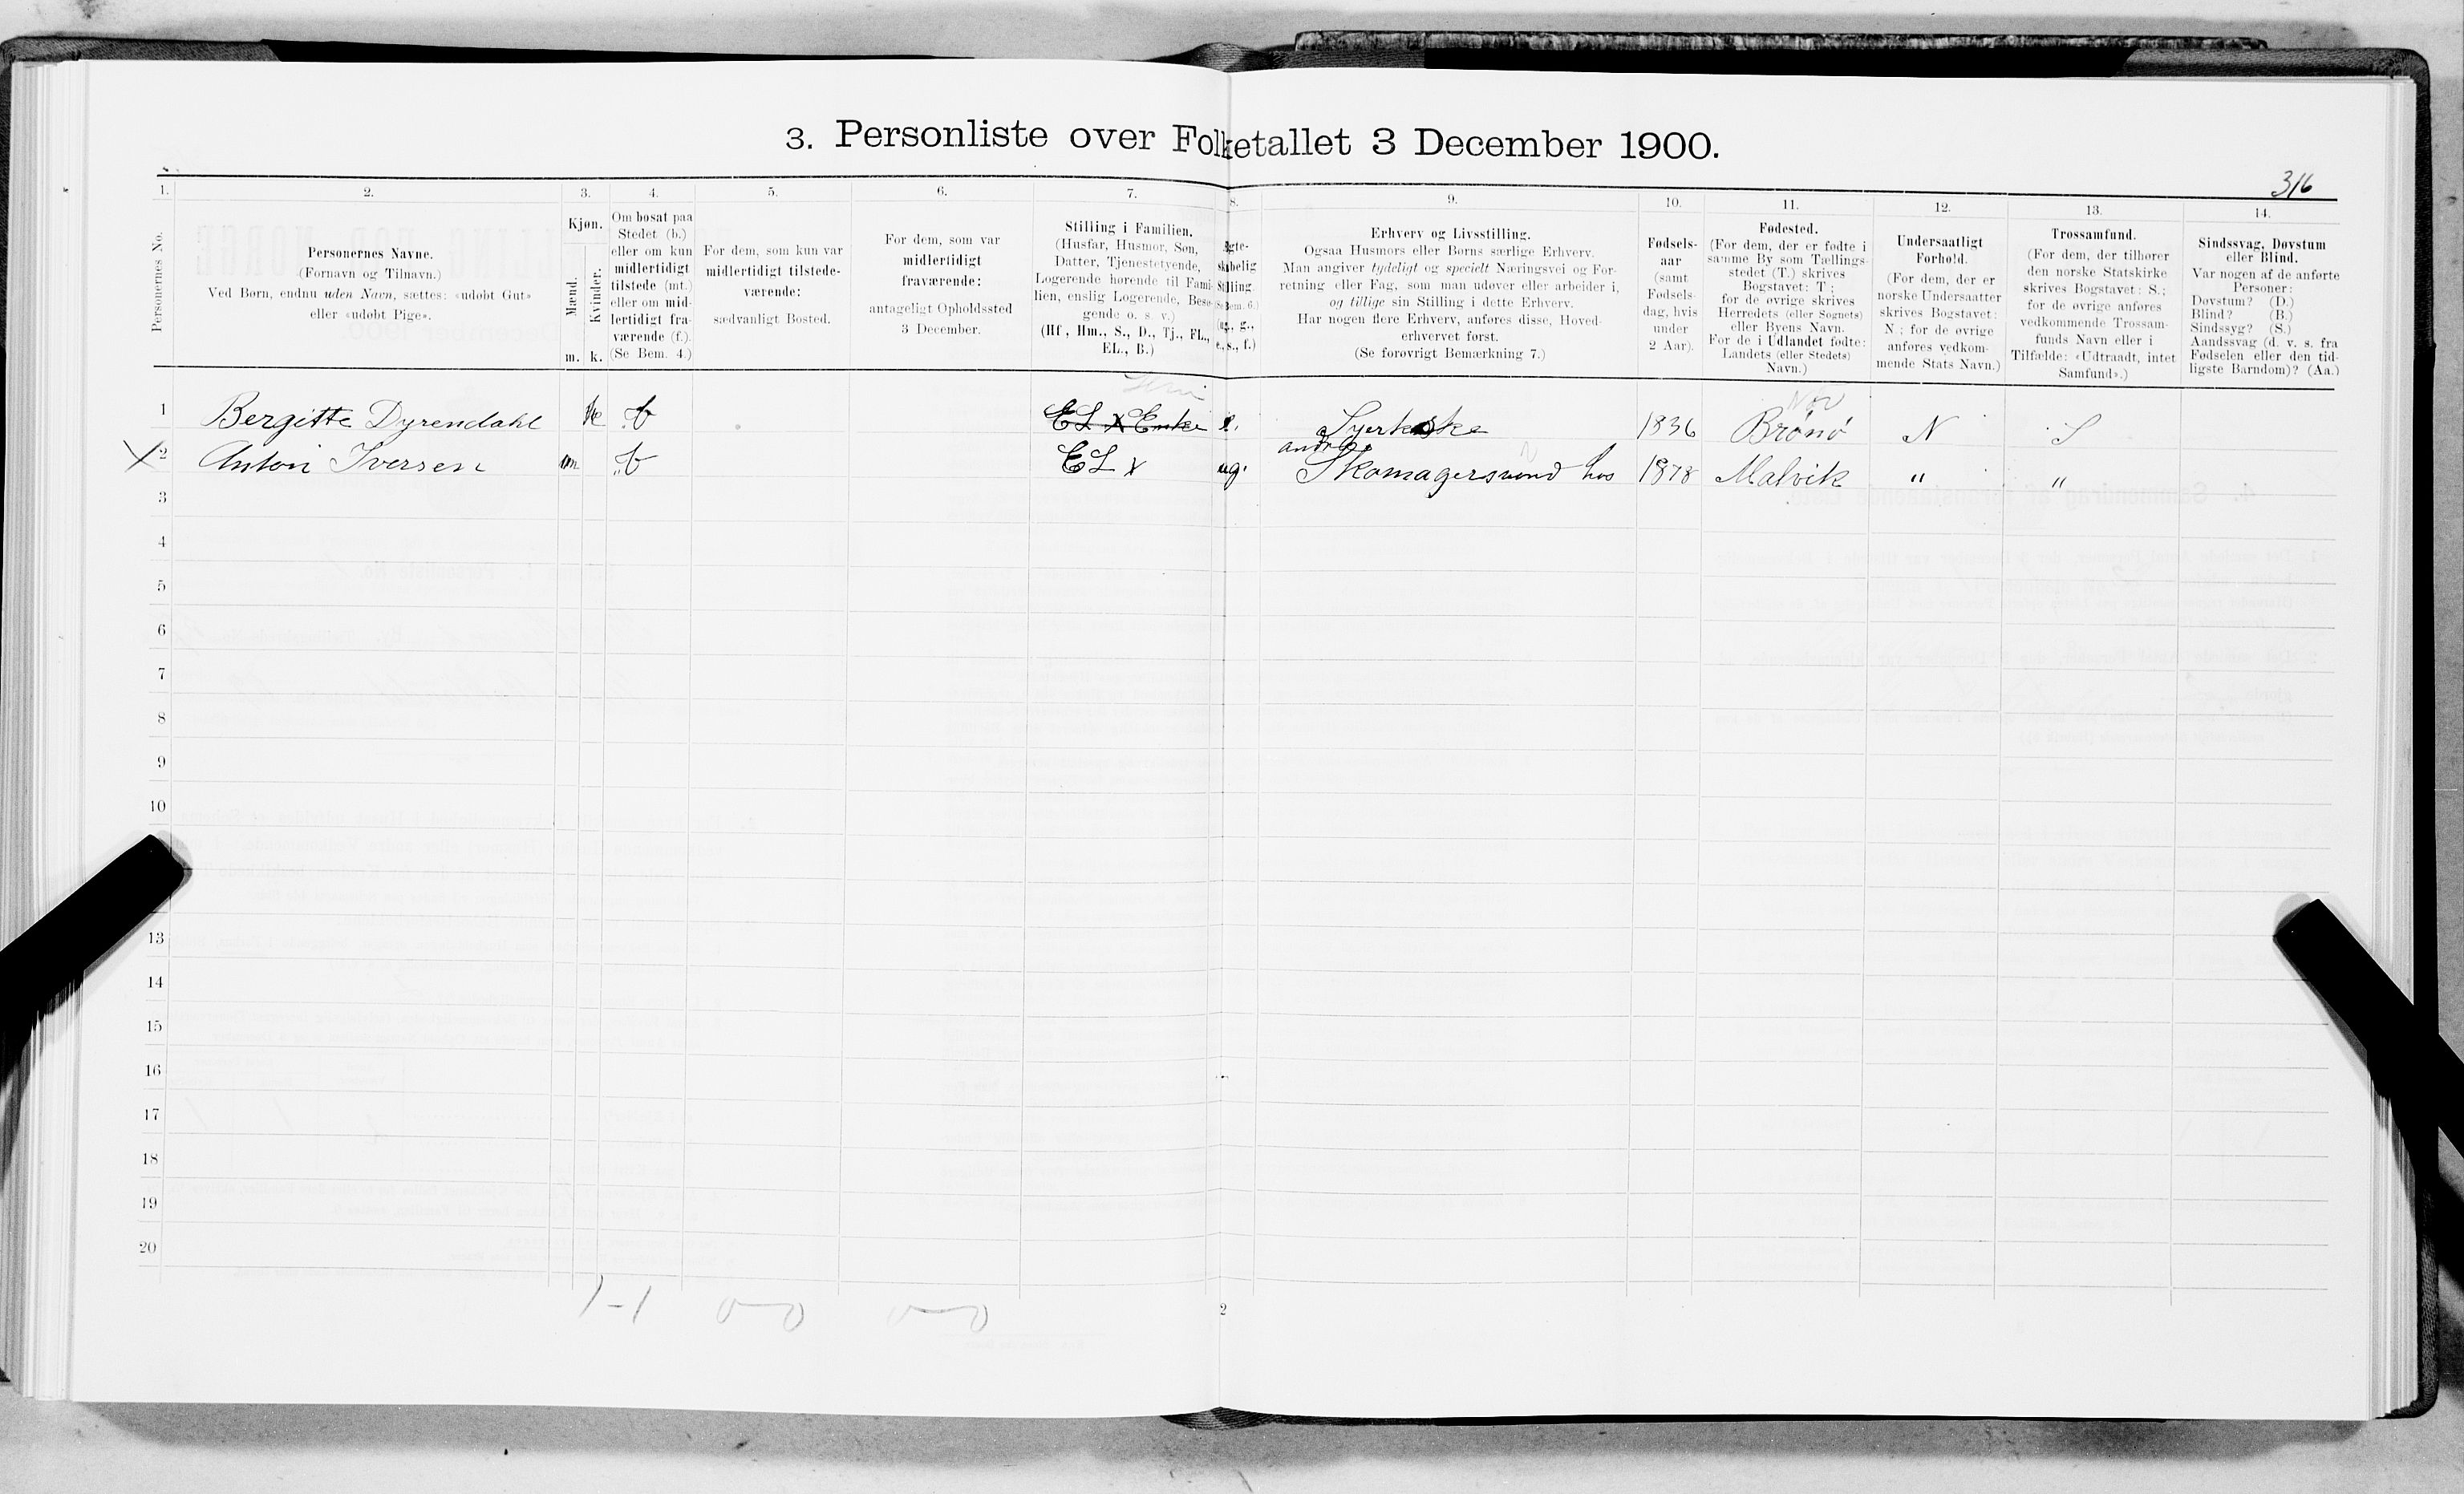 3. Personliste over Folketallet 3 December 1900.
316
1. 2. 3. 4. 5. 6. 7. 8. 9. 10. 11. 12. 13. 14.
Personernes No.
Personernes Navne.
(Fornavn og Tilnavn.)
Ved Børn, endnu uden Navn, sættes: «udøbt Gut»
eller «udøbt Pige».
Kjøn.
Mænd.
Kvinder.
m. k.
Om bosat paa
Stedet (b.)
eller om kun
midlertidigt
tilstede (mt.)
eller om mid-
lertidigt fra-
værende (f.).
(Se Bem. 4.)
For dem, som kun var
midlertidigt tilstede-
værende:
sædvanligt Bosted.
For dem, som var
midlertidigt
fraværende:
antageligt Opholdssted
3 December.
Stilling i Familien.
(Husfar, Husmor, Søn,
Datter, Tjenestetyende,
Logerende hørende til Fami-
lien, enslig Logerende, Besø-
gende o. s. v.)
(Hf., Hm., S., D., Tj., FL.,
EL., B.)
Ægte-
skabelig
Stilling
(Se Bem. 6.)
(ug., g.,
e., s., f.)
Erhverv og Livsstilling.
Ogsaa Husmors eller Børns særlige Erhverv.
Man angiver tydeligt og specielt Næringsvei og For-
retning eller Fag, som man udøver eller arbeider i,
og tillige sin Stilling i dette Erhverv.
Har nogen flere Erhverv, anføres disse, Hoved-
erhvervet først.
(Se forøvrigt Bemærkning 7.)
Fødsels-
aar
(samt
Fødsels-
dag, hvis
under
2 Aar).
Fødested.
(For dem, der er fødte i
samme By som Tællings-
stedet (T.) skrives
Bogstavet: T.;
for de øvrige skrives
Herredets (eller Sognets)
eller Byens Navn.
For de i Udlandet fødte:
Landets (eller Stedets)
Navn.)
Undersaatligt
Forhold.
(For dem, der er
norske Undersaatter
skrives Bogstavet:
N.; for de øvrige
anføres vedkom-
mende Stats Navn.)
Trossamfund.
(For dem, der tilhører
den norske Statskirke
skrives Bogstavet: S.;
for de øvrige anføres
vedkommende Trossam-
funds Navn eller i
Tilfælde: «Udtraadt, intet
Samfund».)
Sindssvag, Døvstum
eller Blind.
Var nogen af de anførte
Personer:
Døvstum? (D.)
Blind? (B.)
Sindssyg? (S.)
Aandssvag (d. v. s. fra
Fødselen eller den tid-
ligste Barndom)? (Aa.)
1 Bergitte Dyrendahl k b EL x Enke e. Syerkeske 1836 Brønø N S
andre
X 2 Anton Iversen m b EL x ug. Skomagersvend hos 1878 Malvik " "
3
4
5
6
7
8
9
10
13
14
15
16
17
18
19
20
1-1 0-0 0-0
2